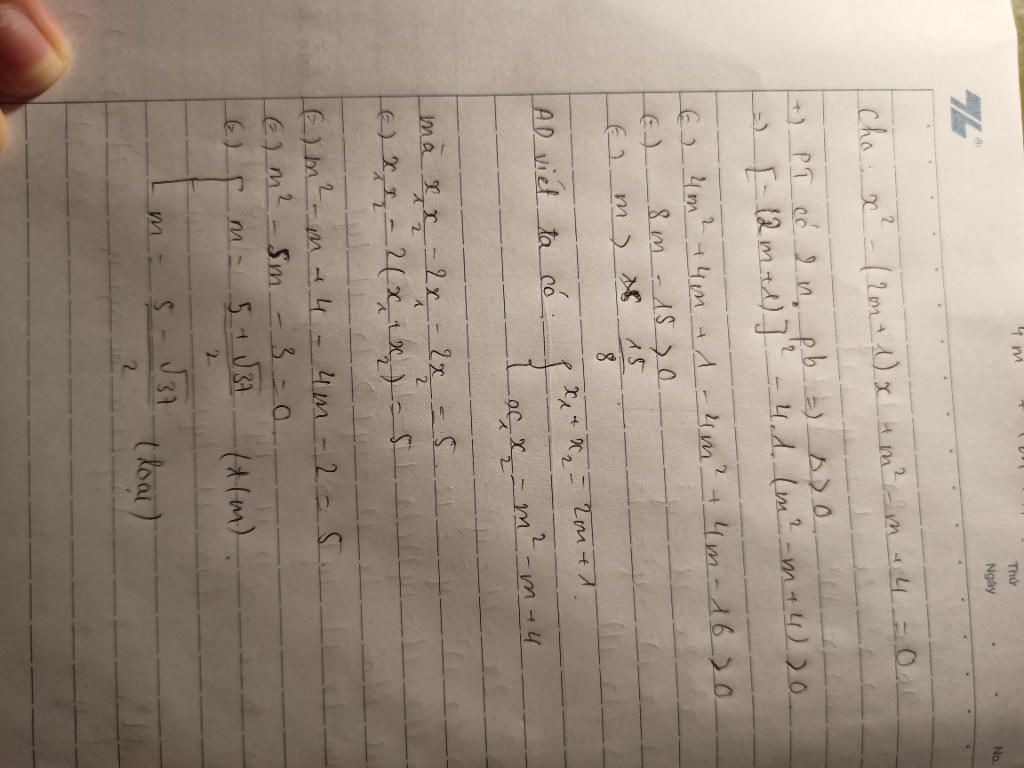 4m
Thứ
Ngày
No.
Cho: x² - (2m+1)x + m² - m + 4 = 0
+) PT có 2 n₀ pb => Δ > 0
=> [-(2m+1)]² - 4.1.(m² - m + 4) > 0
(=) 4m² + 4m + 1 - 4m² + 4m - 16 > 0
(=) 8m - 15 > 0
(=) m > 15/8
AD viét ta có: { x₁ + x₂ = 2m + 1.
x₁x₂ = m² - m + 4
mà x₁x₂ - 2x₁ - 2x₂ = 5
(=) x₁x₂ - 2(x₁ + x₂) = 5
(=) m² - m + 4 - 4m - 2 = 5
(=) m² - 5m - 3 = 0
(=) [ m = (5 + √37)/2 (t/m).
m = (5 - √37)/2 (loại)